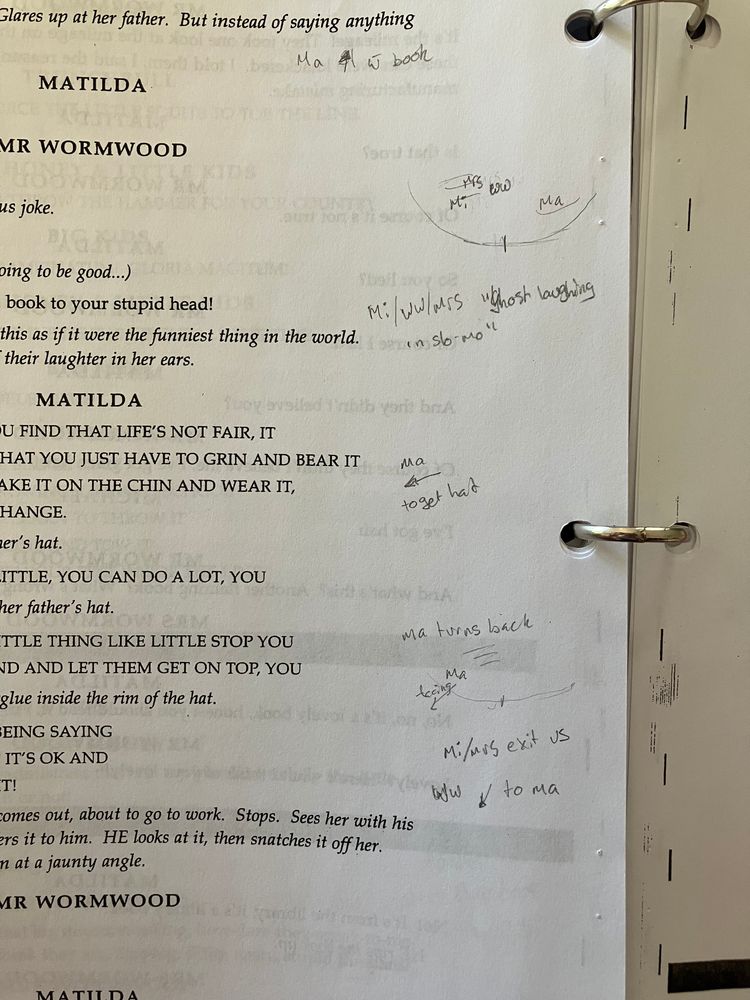 Glares up at her father. But instead of saying anything
Ma w book
MATILDA
MR WORMWOOD
Mrs WW
Mi
Ma
us joke.
oing to be good...)
book to your stupid head!
Mi/WW/Mrs "ghost laughing
in slo-mo"
this as if it were the funniest thing in the world.
their laughter in her ears.
MATILDA
U FIND THAT LIFE'S NOT FAIR, IT
HAT YOU JUST HAVE TO GRIN AND BEAR IT
Ma
AKE IT ON THE CHIN AND WEAR IT,
to get hat
HANGE.
her's hat.
LITTLE, YOU CAN DO A LOT, YOU
her father's hat.
Ma turns back
ITTLE THING LIKE LITTLE STOP YOU
ND AND LET THEM GET ON TOP, YOU
Ma
facing
glue inside the rim of the hat.
BEING SAYING
Mi/Mrs exit US
IT'S OK AND
IT!
WW to Ma
comes out, about to go to work. Stops. Sees her with his
ers it to him. HE looks at it, then snatches it off her.
n at a jaunty angle.
MR WORMWOOD
MATILDA